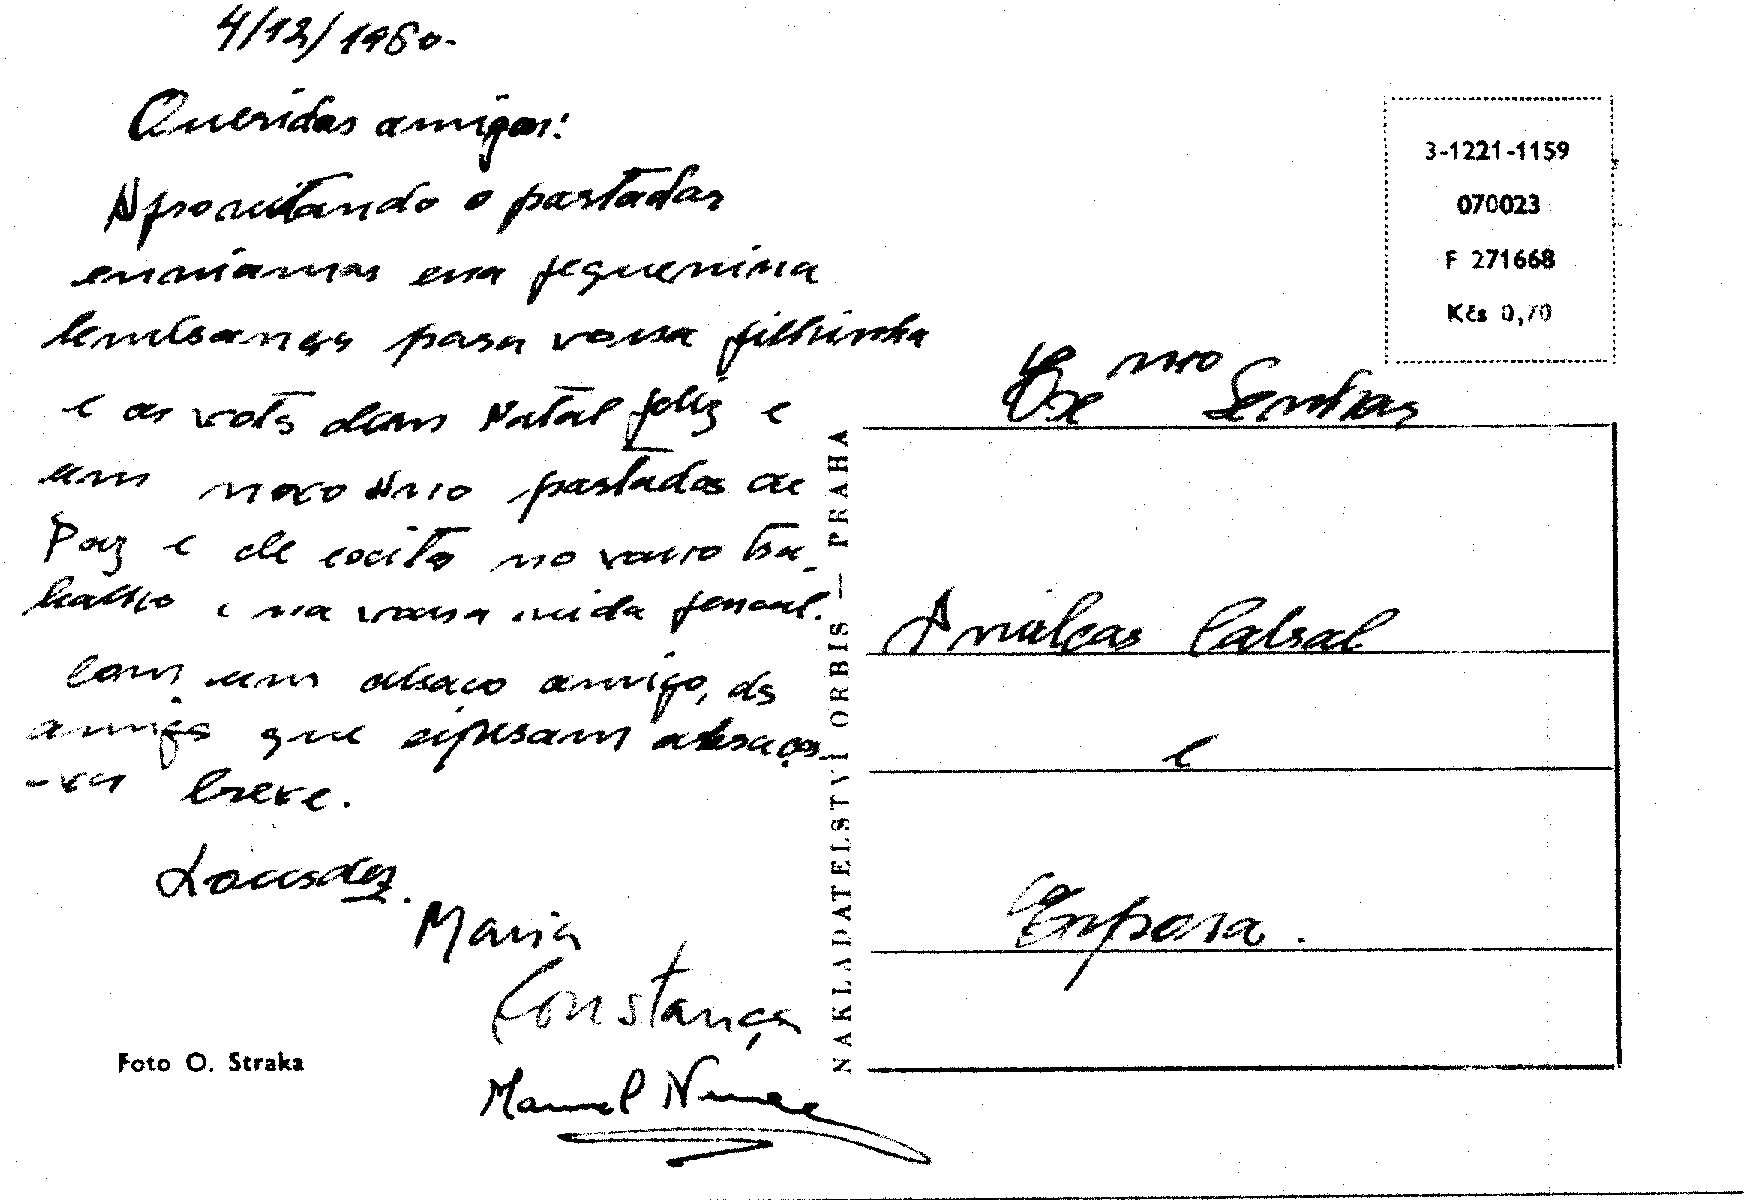 4/12/1960.
Queridos amigos:
Aproveitando o portador
enviamos uma pequenina
lembrança para vossa filhinha
e os votos dum Natal feliz e
um novo Ano portador de
Paz e de exito no vosso tra_
balho e na vossa vida pessoal.
Com um abraço amigo, dos
amigos que esperam abraçar
-vos breve.
Lourdes.
Maria
Constança
Manuel Nunes
Foto O. Straka
NAKLADATELSTVÍ ORBIS — PRAHA
3-1221-1159
070023
F 271668
Kčs 0,70
Exmo Senhor
Amilcar Cabral
e
Esposa.